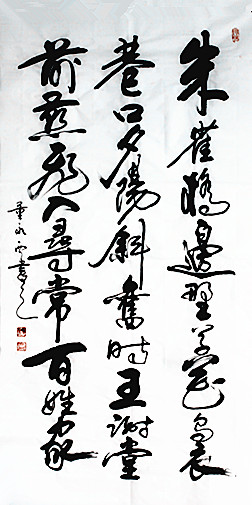 朱雀橋邊野草花烏衣
巷口夕陽斜舊時王謝堂
前燕飛入尋常百姓家
董永書